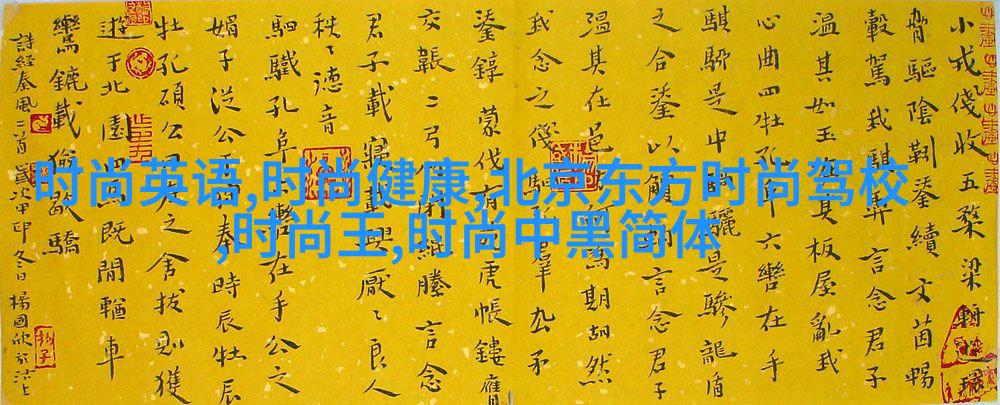 小戎俴收五楘梁輈
脅驅陰靷鋈續文茵暢
轂駕我騏馵言念君子
溫其如玉在其板屋亂我
心曲四牡孔阜六轡在手
騏駵是中騧驪是驂龍盾
之合鋈以觼軜言念君子
溫其在邑方何為期胡然
我念之俴駟孔羣厹矛
鋈錞蒙伐有苑虎帳鏤膺
交韔二弓竹閉緄縢言念
君子載寢載興厭〻良人
秩〻德音
駟驖孔阜六轡在手公之
媚子從公于狩奉時辰牡辰
牡孔碩公曰左之舍拔則獲
遊于北園四馬既閒輶車
鸞鑣載獫歇驕
詩經秦風二首歲次甲申冬日楊國欣於汴上
时尚英语,时尚健康,北京东方时尚驾校
,时尚王,时尚中黑简体